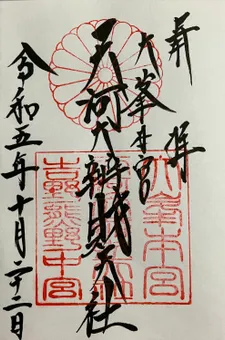 奉拝
大峯本宮
天河大辨財天社
令和五年十月二十二日
大峯本宮
吉野熊野中宮